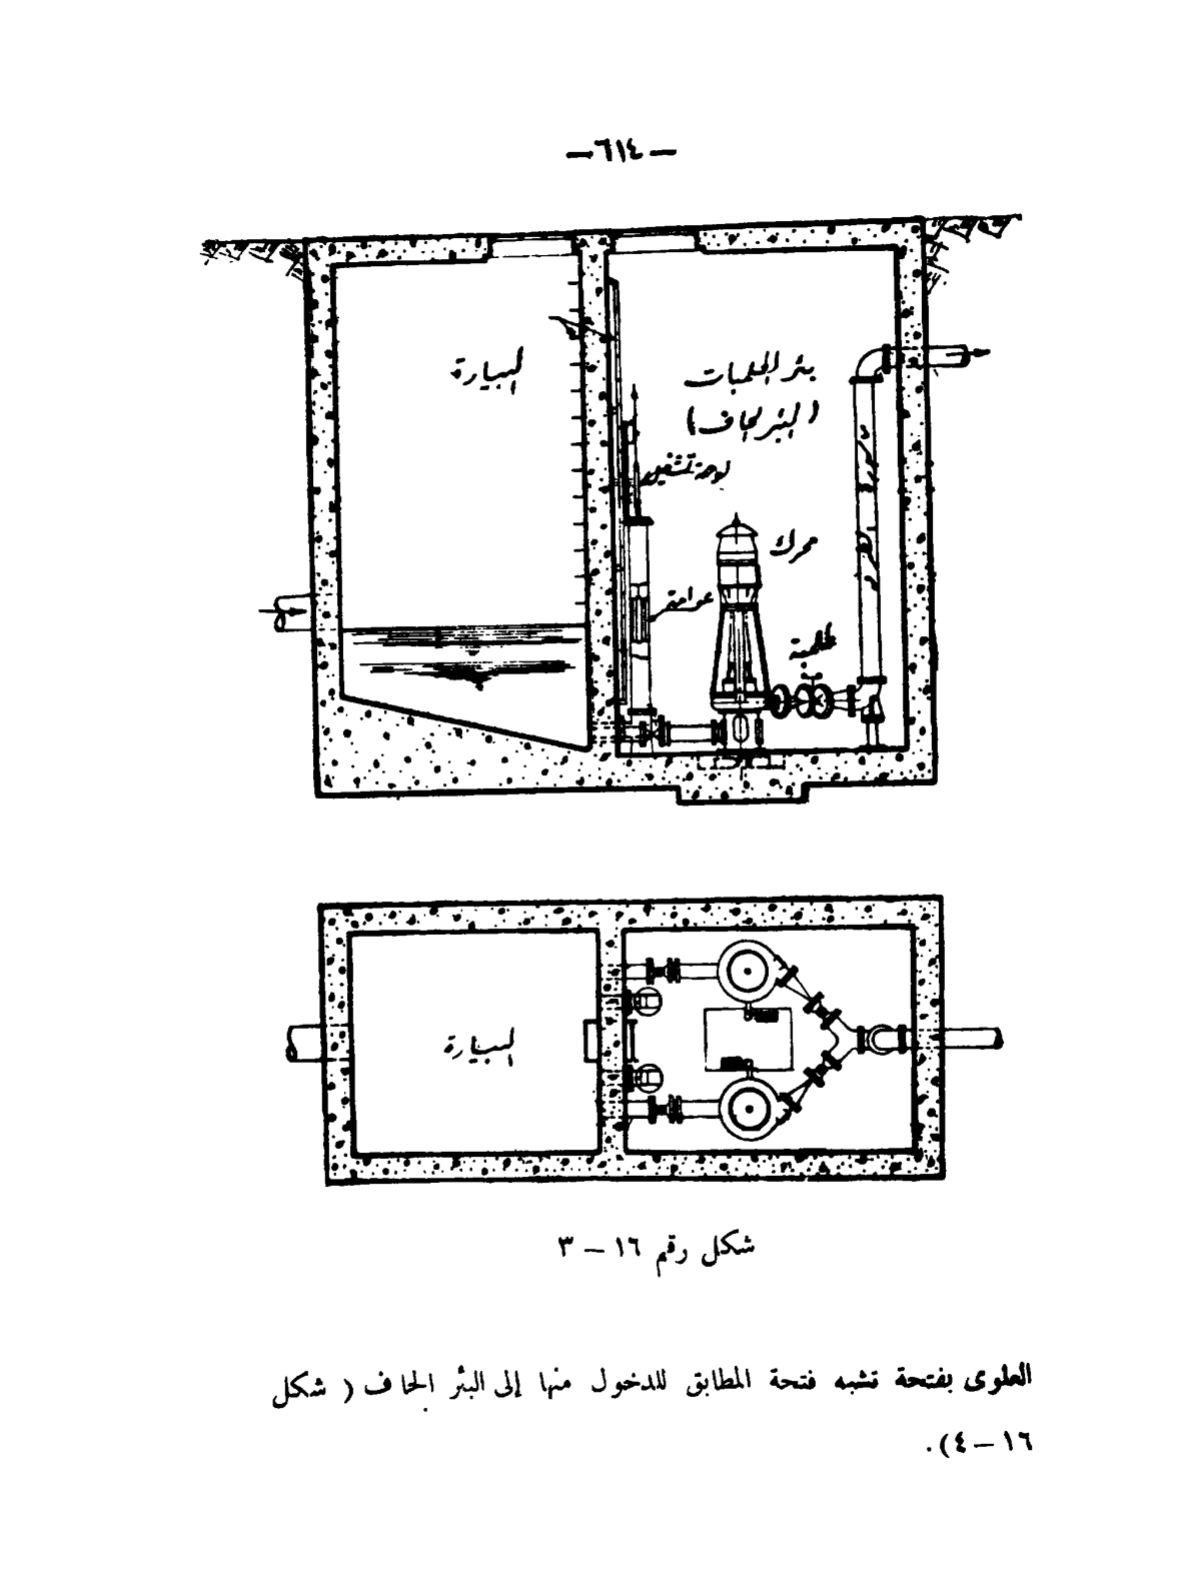 —٦١٤—
البيارة
بئر الطلمبات
(البئر الجاف)
لوحة تشغيل
محرك
عوامة
طلمبة
ماسورة الطرد
البيارة
شكل رقم ١٦ — ٣
العلوى بفتحة تشبه فتحة المطابق للدخول منها إلى البئر الجاف ( شكل
١٦—٤).